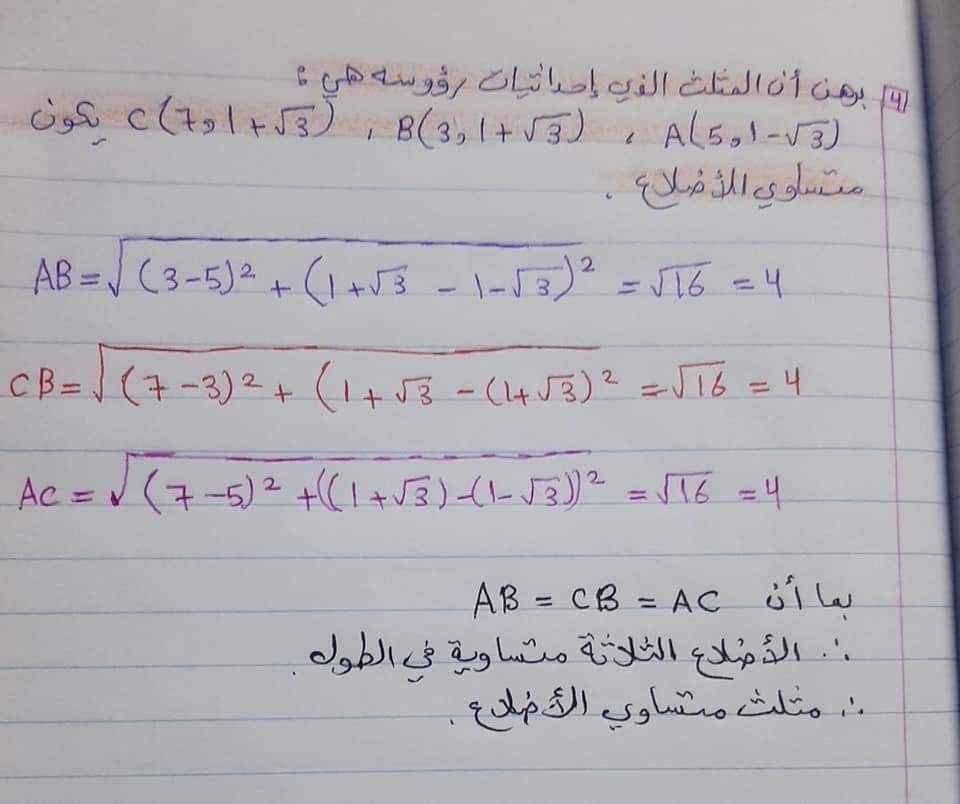 4 برهن أن المثلث الذي إحداثيات رؤوسه هي :
A(5, 1-√3) ، B(3, 1+√3) ، C(7, 1+√3) يكون
متساوي الأضلاع .
AB = √(3-5)² + (1+√3 - 1-√3)² = √16 = 4
CB = √(7-3)² + (1+√3 - (1+√3)² = √16 = 4
AC = √(7-5)² + ((1+√3)-(1-√3))² = √16 = 4
بما أن AB = CB = AC
∴ الأضلاع الثلاثة متساوية في الطول .
∴ مثلث متساوي الأضلاع .